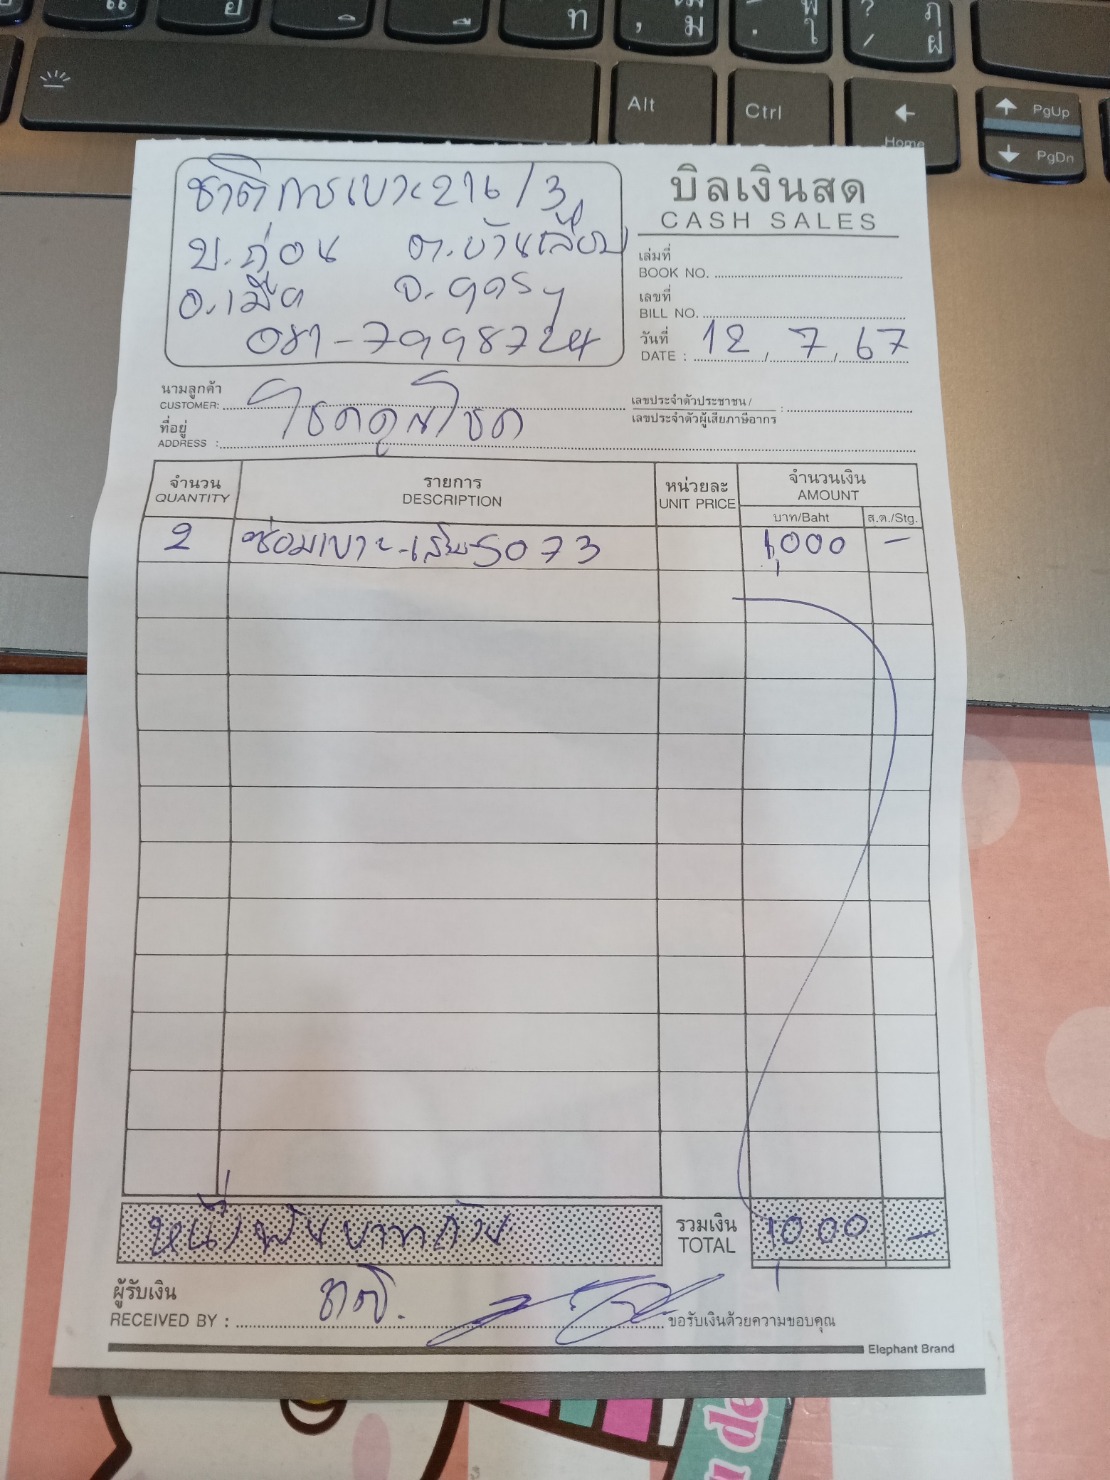 Alt
Ctrl
Home
PgUp
PgDn
ชาติการเบาะ 216/3
บ.ถ่อน ต.บ้านเลื่อม
อ.เมือง จ.อุดรฯ
081-7998724
บิลเงินสด
CASH SALES
เล่มที่
BOOK NO.
เลขที่
BILL NO.
วันที่
DATE : 12, 7, 67
นามลูกค้า
CUSTOMER: โชคดูลโชค
เลขประจำตัวประชาชน /
เลขประจำตัวผู้เสียภาษีอากร :
ที่อยู่
ADDRESS :
จำนวน รายการ หน่วยละ จำนวนเงิน
QUANTITY DESCRIPTION UNIT PRICE AMOUNT
บาท/Baht ส.ต./Stg.
2 ซ่อมเบาะ 5073 1,000 -
หนึ่งพันบาทถ้วน
รวมเงิน
TOTAL 1,000 -
ผู้รับเงิน
RECEIVED BY : ชาติ.
ขอรับเงินด้วยความขอบคุณ
Elephant Brand